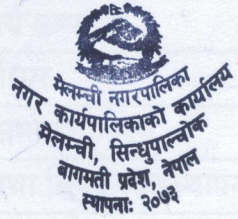 मेलम्ची नगरपालिका
नगर कार्यपालिकाको कार्यालय
मेलम्ची, सिन्धुपाल्चोक
बागमती प्रदेश, नेपाल
स्थापनाः २०७३